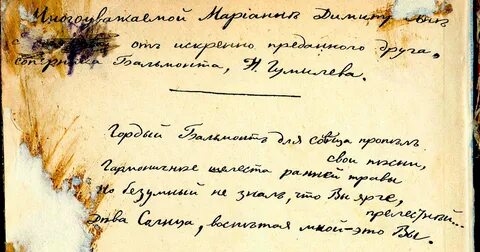 Многоуважаемой Маріаннѣ Димитр
отъ искренно преданного друга,
соперника Бальмонта, Н. Гумилева.
Гордый Бальмонтъ для солнца пропѣлъ
свои пѣсни,
Гармоничнѣе шелеста ранней травы
Но безумный не зналъ, что Вы ярче,
прелестнѣй...
Два Солнца, воспѣтая мной - это Вы.